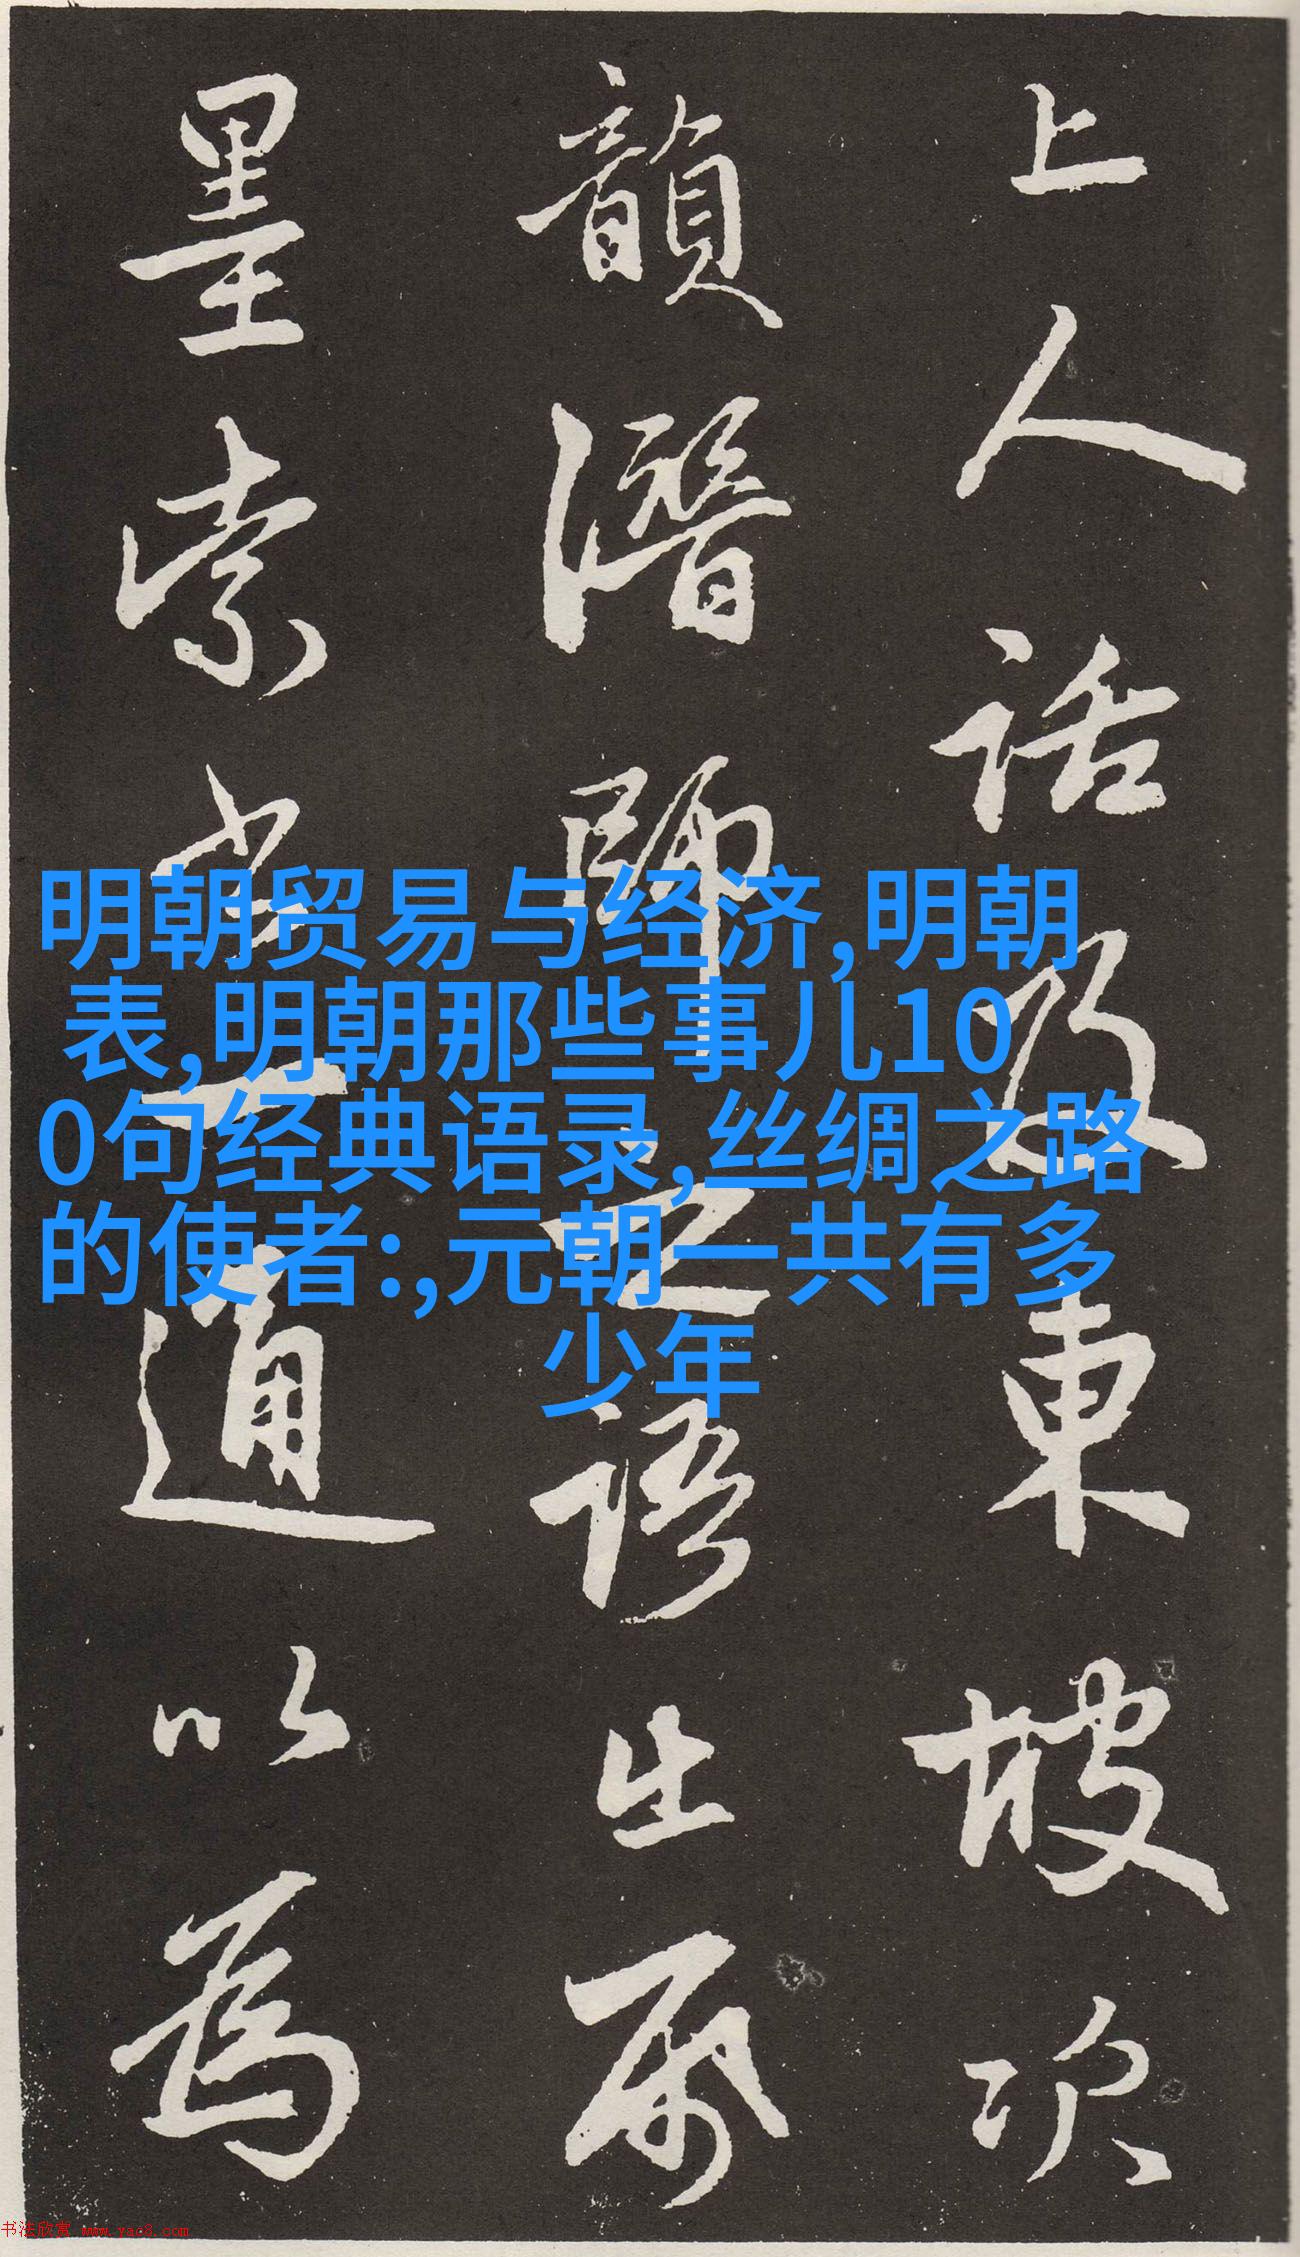 上人話及東坡次
韻潛師之語出帋
墨索書一通以為
明朝贸易与经济,明朝
表,明朝那些事儿10
0句经典语录,丝绸之路
的使者:,元朝一共有多
少年
书法欣赏 www.yac8.com